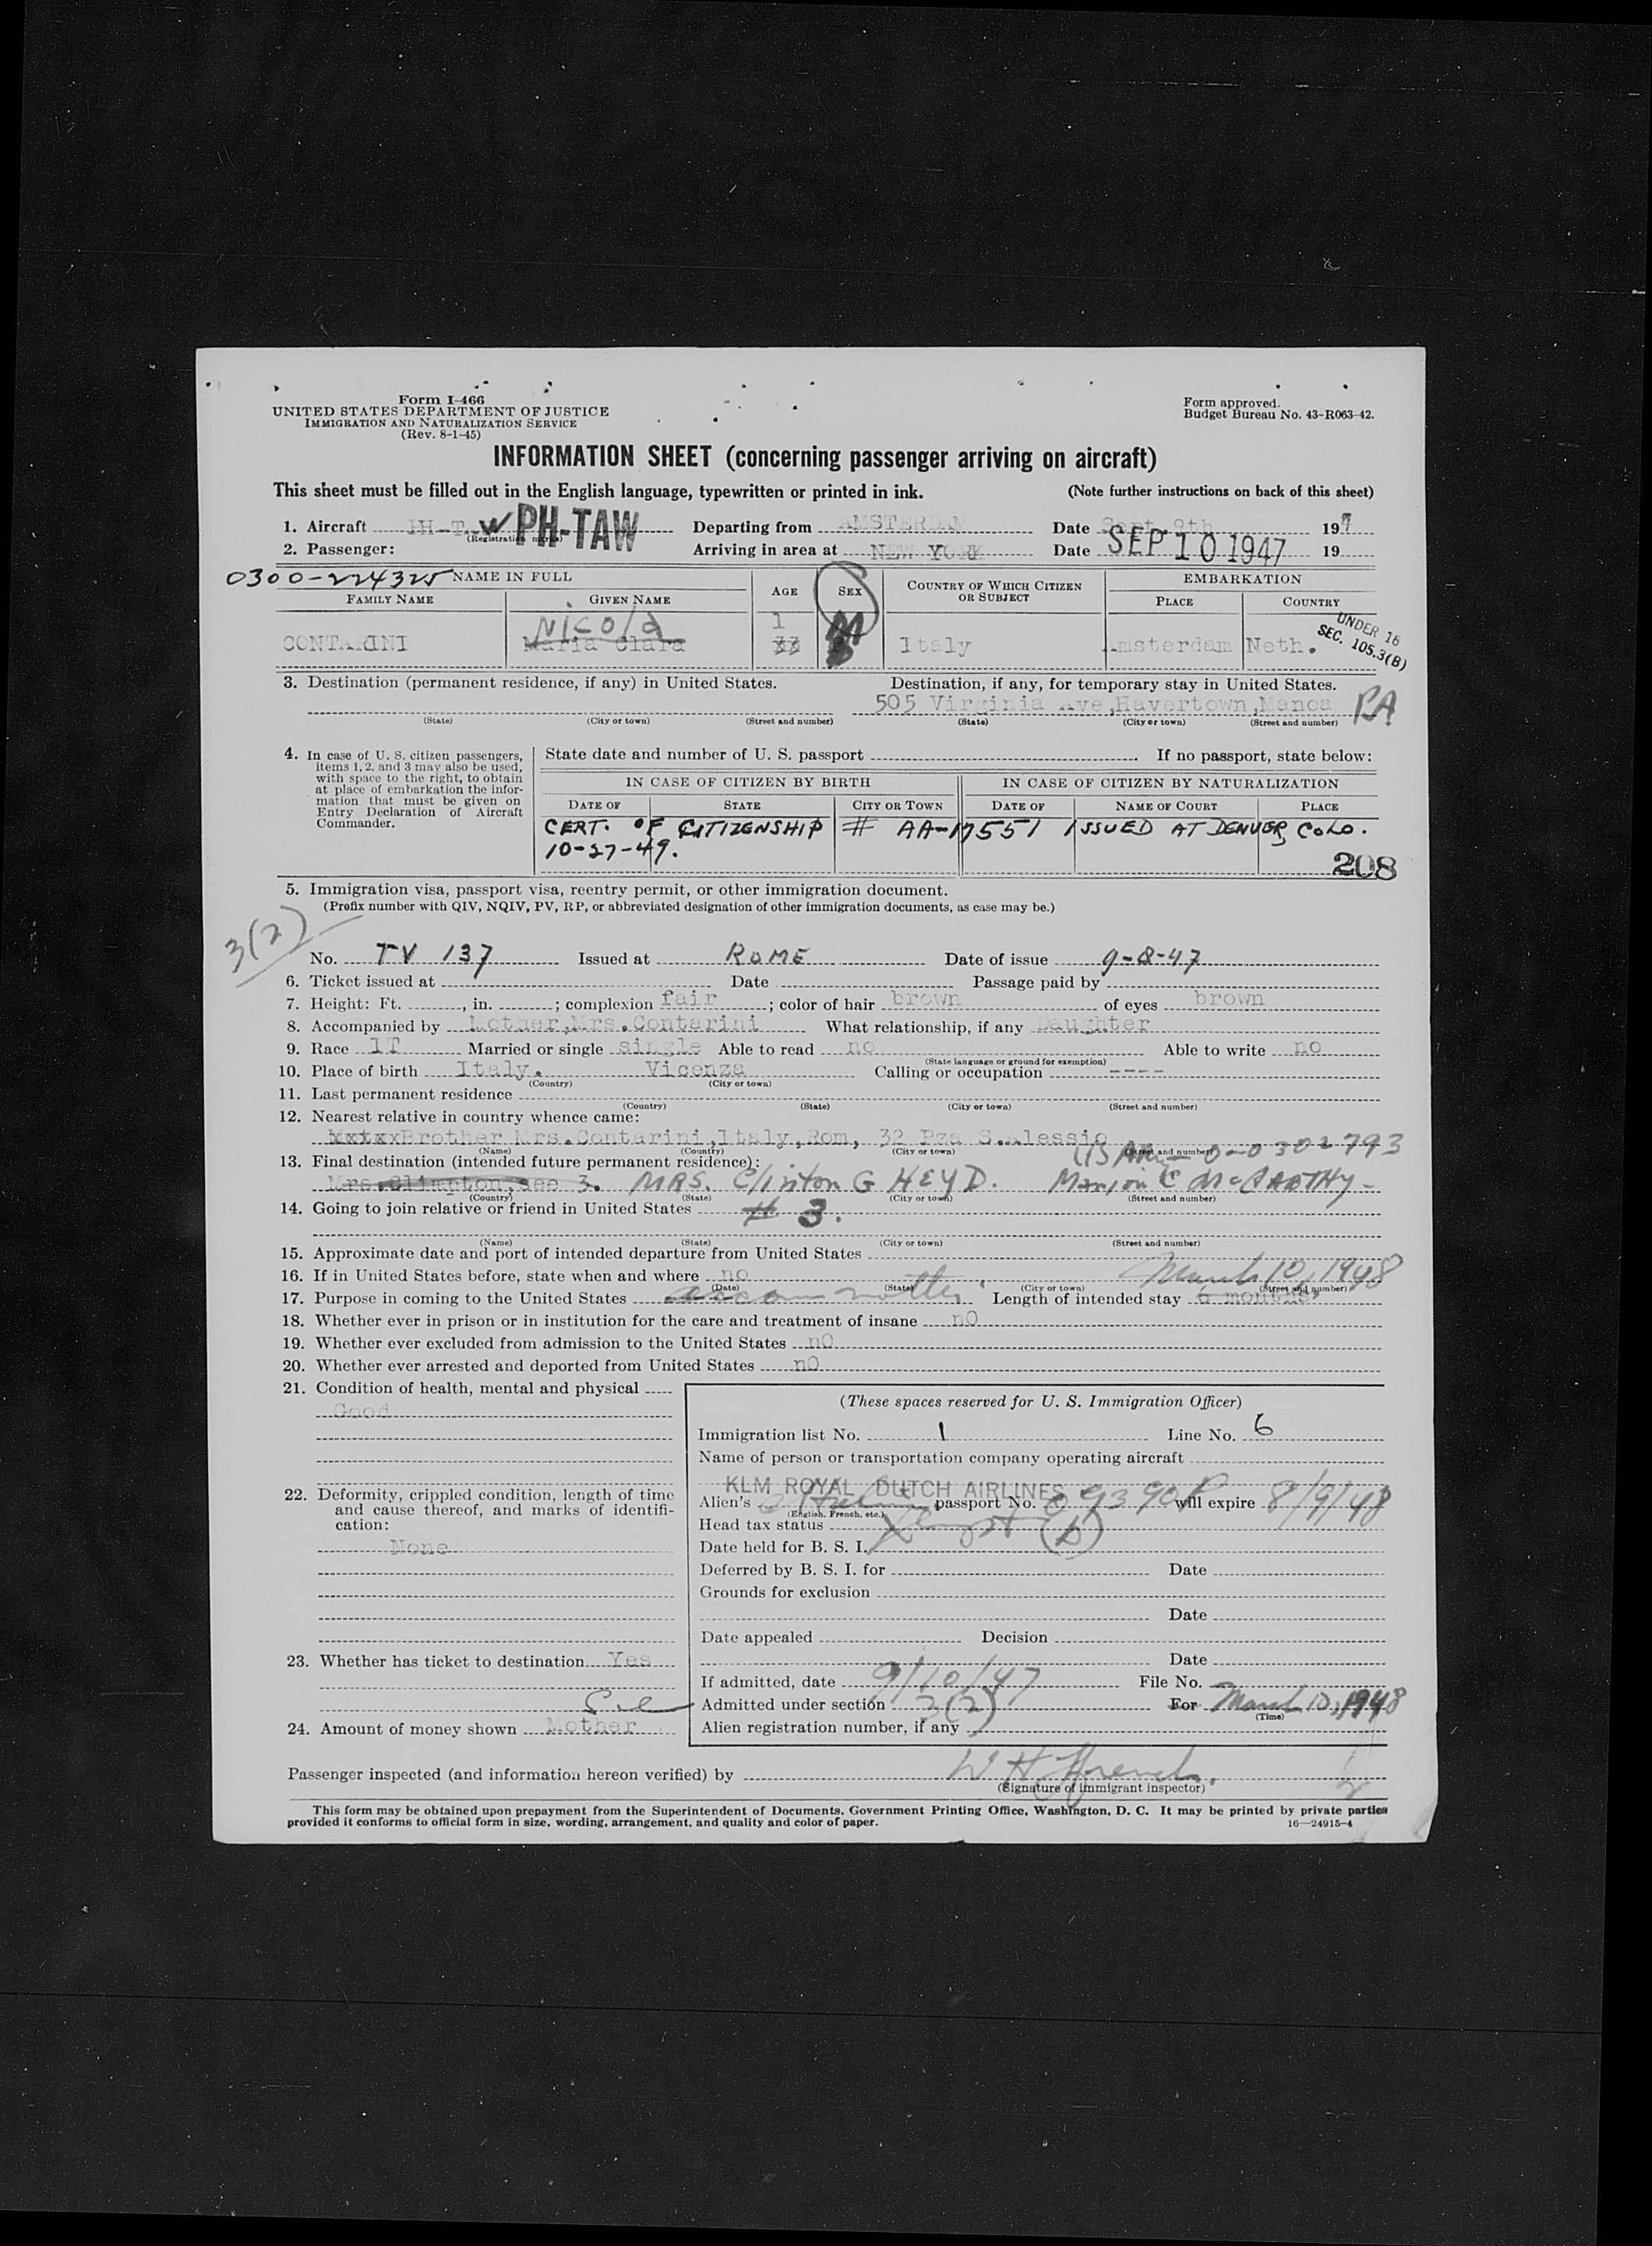 Form I-466
UNITED STATES DEPARTMENT OF JUSTICE
IMMIGRATION AND NATURALIZATION SERVICE
(Rev. 8-1-45)
Form approved.
Budget Bureau No. 43-R063-42.
INFORMATION SHEET (concerning passenger arriving on aircraft)
This sheet must be filled out in the English language, typewritten or printed in ink. (Note further instructions on back of this sheet)
1. Aircraft PH-T W PH-TAW Departing from AMSTERDAM Date Sept 9th 197
(Registration marks)
2. Passenger: Arriving in area at NEW YORK Date SEP 10 1947 19
0300-224325 NAME IN FULL AGE SEX COUNTRY OF WHICH CITIZEN OR SUBJECT EMBARKATION
FAMILY NAME GIVEN NAME PLACE COUNTRY
Nicola 1 UNDER 16
CONTARINI Maria Clara 33 M Italy Amsterdam Neth. SEC. 105.3(B)
3. Destination (permanent residence, if any) in United States. Destination, if any, for temporary stay in United States.
505 Virginia Ave,Havertown,Manoa PA
(State) (City or town) (Street and number) (State) (City or town) (Street and number)
4. In case of U. S. citizen passengers, items 1, 2, and 3 may also be used, with space to the right, to obtain at place of embarkation the information that must be given on Entry Declaration of Aircraft Commander.
State date and number of U. S. passport If no passport, state below:
IN CASE OF CITIZEN BY BIRTH IN CASE OF CITIZEN BY NATURALIZATION
DATE OF STATE CITY OR TOWN DATE OF NAME OF COURT PLACE
CERT. OF CITIZENSHIP # AA-17551 ISSUED AT DENVER, COLO.
10-27-49.
208
5. Immigration visa, passport visa, reentry permit, or other immigration document.
(Prefix number with QIV, NQIV, PV, RP, or abbreviated designation of other immigration documents, as case may be.)
3(2)
No. TV 137 Issued at ROME Date of issue 9-8-47
6. Ticket issued at Date Passage paid by
7. Height: Ft. , in. ; complexion fair ; color of hair brown of eyes brown
8. Accompanied by Mother,Mrs.Contarini What relationship, if any Daughter
9. Race IT Married or single single Able to read no Able to write no
(State language or ground for exemption)
10. Place of birth Italy. Vicenza Calling or occupation ----
(Country) (City or town)
11. Last permanent residence
(Country) (State) (City or town) (Street and number)
12. Nearest relative in country whence came:
Brother Mrs.Contarini,Italy,Rom, 32 Pza S.Alessio
(Name) (Country) (City or town) (Street and number)
US Army 0-0302793
13. Final destination (intended future permanent residence):
Mrs.Climpton,see 3. MRS. Clinton G HEYD. Marion C McCARTHY-
(Country) (State) (City or town) (Street and number)
14. Going to join relative or friend in United States # 3.
(Name) (State) (City or town) (Street and number)
15. Approximate date and port of intended departure from United States
March 10, 1948
16. If in United States before, state when and where no
(Date) (State) (City or town) (Street and number)
17. Purpose in coming to the United States accom mother Length of intended stay 6 months
18. Whether ever in prison or in institution for the care and treatment of insane nO
19. Whether ever excluded from admission to the United States nO
20. Whether ever arrested and deported from United States nO
21. Condition of health, mental and physical
Good
22. Deformity, crippled condition, length of time and cause thereof, and marks of identification:
None
23. Whether has ticket to destination Yes
24. Amount of money shown Mother
(These spaces reserved for U. S. Immigration Officer)
Immigration list No. 1 Line No. 6
Name of person or transportation company operating aircraft
KLM ROYAL DUTCH AIRLINES
Alien's Italian passport No. 09390P will expire 8/9/48
(English, French, etc.)
Head tax status Exempt (b)
Date held for B. S. I.
Deferred by B. S. I. for Date
Grounds for exclusion
Date
Date appealed Decision
Date
If admitted, date 9/10/47 File No.
Admitted under section 3(2) For March 10, 1948
(Time)
Alien registration number, if any
Passenger inspected (and information hereon verified) by W H French.
(Signature of immigrant inspector)
This form may be obtained upon prepayment from the Superintendent of Documents, Government Printing Office, Washington, D. C. It may be printed by private parties
provided it conforms to official form in size, wording, arrangement, and quality and color of paper. 16—24915-4